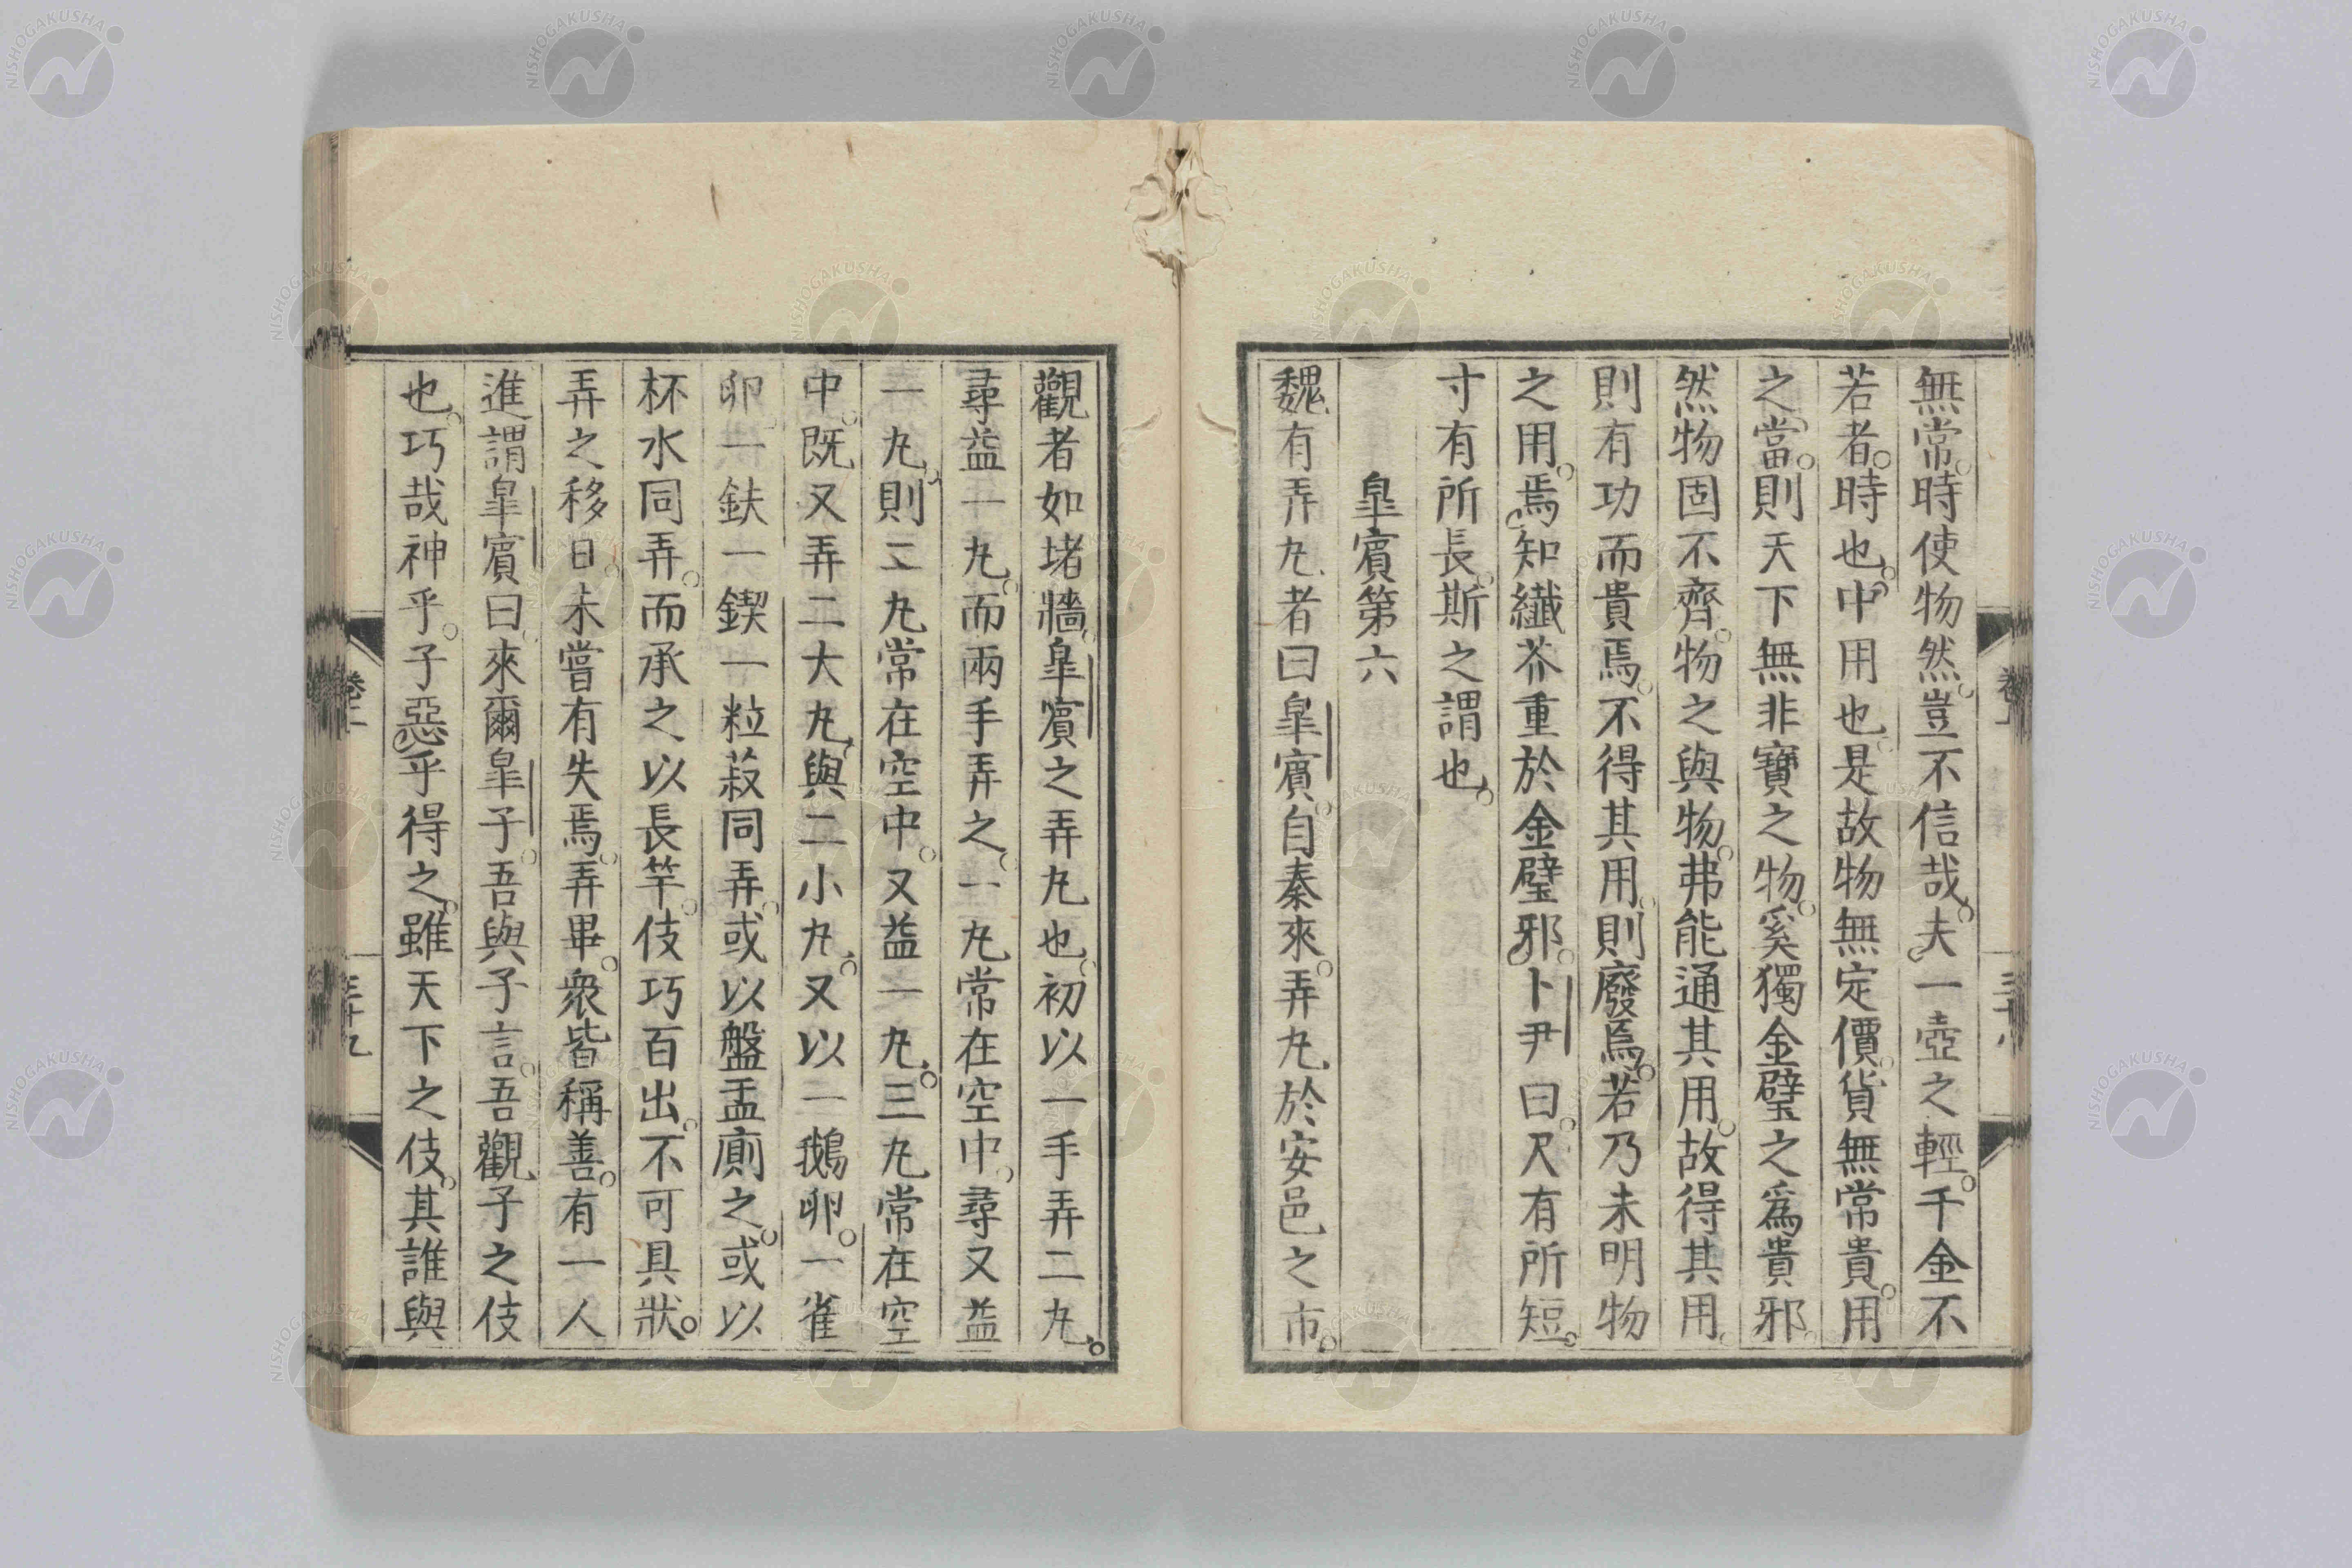 無常。時使物然。豈不信哉。夫一壺之輕。千金不
若者。時也。中用也。是故物無定價。貨無常貴。用
之當。則天下無非寶之物。奚獨金璧之爲貴邪。
然物固不齊。物之與物。弗能通其用。故得其用。
則有功而貴焉。不得其用。則廢焉。若乃未明物
之用。焉知纖芥重於金璧邪。卜尹曰。尺有所短。
寸有所長。斯之謂也。
皐賓第六
魏有弄丸者曰皐賓。自秦來。弄丸於安邑之市。
觀者如堵牆。皐賓之弄丸也。初以一手弄二丸。
尋益一丸。而兩手弄之。一丸常在空中。尋又益
一丸。則二丸常在空中。又益一丸。三丸常在空
中。既又弄二大丸。與二小丸。又以一鵝卵。一雀
卵一鈇一鍥一粒菽同弄。或以盤盂廁之。或以
杯水同弄。而承之以長竿。伎巧百出。不可具狀。
弄之移日。未嘗有失焉。弄畢。衆皆稱善。有一人
進謂皐賓曰。來爾皐子。吾與子言。吾觀子之伎
也。巧哉神乎。子惡乎得之。雖天下之伎。其誰與
卷上
三十八
三十九
NISHOGAKUSHA